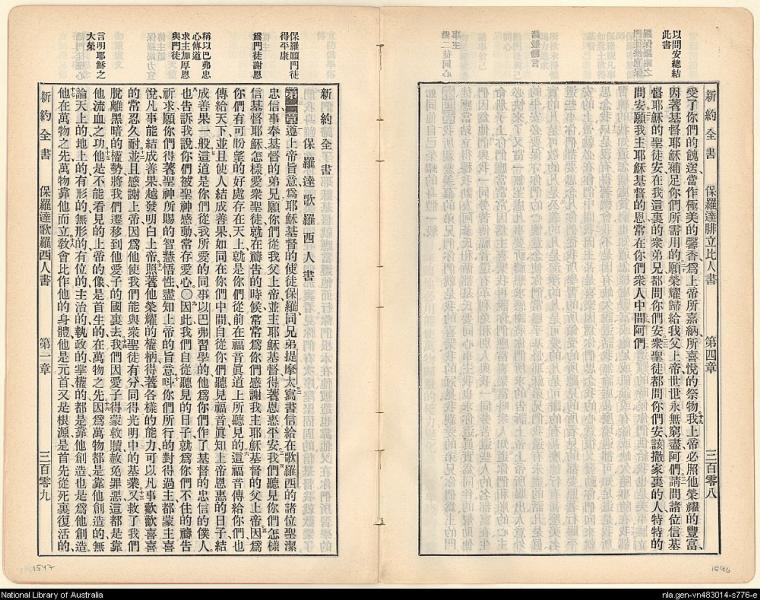 新約全書 保羅達腓立比人書 第四章 三百零八
以問安總結此書
愛了你們的餽送當作極美的馨香爲上帝所嘉納所喜悅的祭物我上帝必照他榮耀的豐富
因著基督耶穌補足你們所需用的願榮耀歸給我父上帝世世永無窮盡阿們請問諸位信基
督耶穌的聖徒安在我這裏的衆弟兄都問你們安衆聖徒都問你們安該撒家裏的人特特的
問安願我主耶穌基督的恩常在你們衆人中間阿們
新約全書
保羅達歌羅西人書
保羅願門徒得平康
爲門徒謝恩
稱以巴弗忠心傳道
求主加厚恩與門徒
言明耶穌之大榮
遵上帝旨意爲耶穌基督的使徒保羅同兄弟提摩太寫書信給在歌羅西的諸位聖潔
忠信事奉基督的弟兄願你們從我父上帝並主耶穌基督得著恩惠平安我們聽見你們怎樣
信基督耶穌怎樣愛衆聖徒就在禱告的時候常常爲你們感謝我主耶穌基督的父上帝因爲
你們有可盼望的好處存在天上就是你們從前在福音眞道上所聽見的這福音傳給你們也
傳給天下並且使人結成善果如同在你們中間自從你們聽見福音眞知上帝恩惠的日子結
成善果一般這道是你們從我所愛的同事以巴弗習學的他爲你們作了基督的忠信的僕人
也告訴我說你們被聖神感動常存愛心〇因此我們自從聽見的日子就爲你們不住的禱告
祈求願你們得著聖神所賜的智慧悟性盡知上帝的旨意叫你們所行的對得過主都蒙主喜
悅凡事能結成善果越發明白上帝照著他榮耀的權柄得著各樣的能力可以凡事歡歡喜喜
的常忍久耐並且感謝上帝因爲他使我們能與衆聖徒有分同得光明中的基業又救了我們
脫離黑暗的權勢將我們遷移到他愛子的國裏去我們因愛子得蒙救贖赦免罪惡這都是靠
他流血之功他是不能看見的上帝的像是首生的在萬物之先因爲萬物都是靠他創造的無
論天上的地上的有形的無形的有位的主治的執政的掌權的都是靠他創造也是爲他創造
他在萬物之先萬物靠他而立教會比作他的身體他是元首又是根源是首先從死裏復活的
新約全書 保羅達歌羅西人書 第一章 三百零九
1547
1546
National Library of Australia
nla.gen-vn483014-s776-e